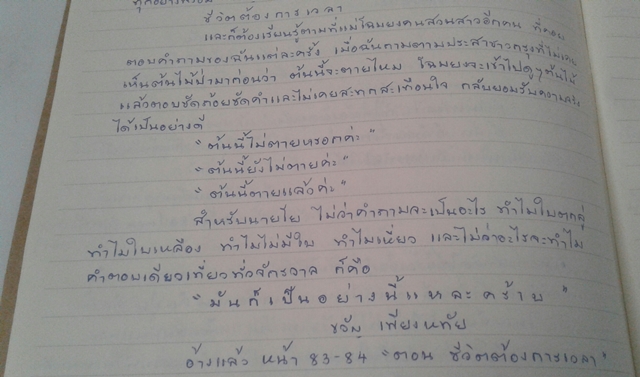 ทุกอย่างพร้อม
ชีวิตต้องการเวลา
และก็ต้องเรียนรู้ตามที่แม่โฉมยงคนสวนสาวอีกคน ที่คอย
ตอบคำถามของฉันแต่ละครั้ง เมื่อฉันถามตามประสาชาวกรุงที่ไม่เคย
เห็นต้นไม้ป่ามาก่อนว่า ต้นนี้จะตายไหม โฉมยงจะเข้าไปดูๆต้นไม้
แล้วตอบชัดถ้อยชัดคำและไม่เคยสะทกสะเทือนใจ กลับยอมรับความจริง
ได้เป็นอย่างดี
"ต้นนี้ไม่ตายหรอกค่ะ"
"ต้นนี้ยังไม่ตายค่ะ"
"ต้นนี้ตายแล้วค่ะ"
สำหรับนายไย ไม่ว่าคำถามจะเป็นอะไร ทำไมใบตกลู่
ทำไมใบเหลือง ทำไมไม่มีใบ ทำไมเหี่ยว และไม่ว่าอะไรจะทำไม
คำตอบเดียวเที่ยวทั่วจักรวาล ก็คือ
"มันก็เป็นอย่างนี้แหละคร้าบ"
ขวัญ เพียงหทัย
อ้างแล้ว หน้า 83-84 "ตอน ชีวิตต้องการเวลา"